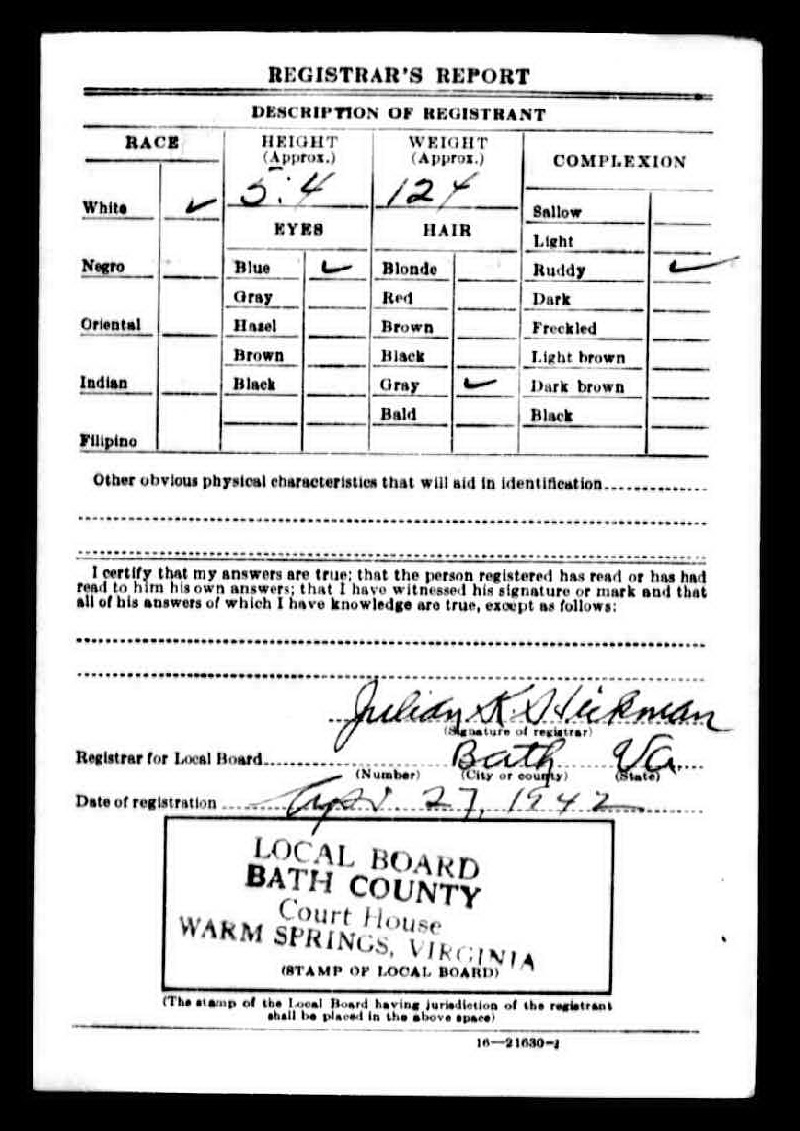 REGISTRAR'S REPORT
DESCRIPTION OF REGISTRANT
RACE HEIGHT (Approx.) WEIGHT (Approx.) COMPLEXION
5:4 124
White ✓
EYES HAIR
Sallow
Light
Negro Blue ✓ Blonde Ruddy ✓
Gray Red Dark
Oriental Hazel Brown Freckled
Brown Black Light brown
Indian Black Gray ✓ Dark brown
Bald Black
Filipino
Other obvious physical characteristics that will aid in identification
I certify that my answers are true; that the person registered has read or has had
read to him his own answers; that I have witnessed his signature or mark and that
all of his answers of which I have knowledge are true, except as follows:
Julian K. Hickman
(Signature of registrar)
Registrar for Local Board Bath Va.
(Number) (City or county) (State)
Date of registration Apr. 27, 1942
LOCAL BOARD
BATH COUNTY
Court House
WARM SPRINGS, VIRGINIA
(STAMP OF LOCAL BOARD)
(The stamp of the Local Board having jurisdiction of the registrant
shall be placed in the above space)
16—21630-1